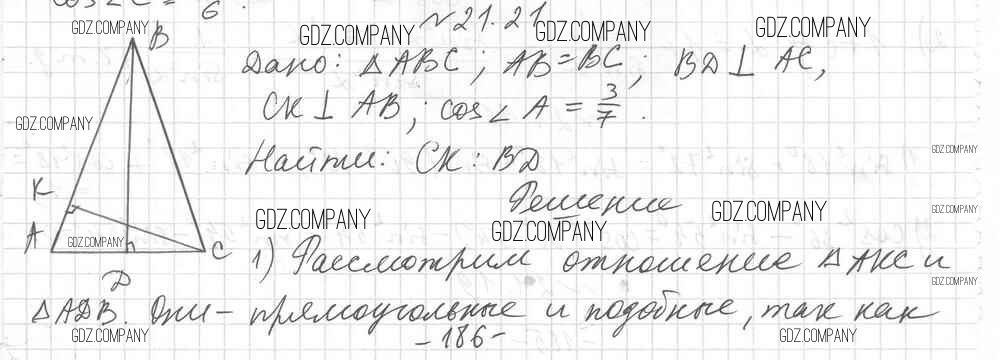 cos∠C = 6.
№21.21
Дано: △ABC; AB=BC; BD⊥AC,
CK⊥AB; cos∠A = 3/7.
Найти: CK:BD
Решение
1) Рассмотрим отношение △AKC и
△ADB. Они – прямоугольные и подобные, так как
-186-
B
K
A
C
D
GDZ.COMPANY
GDZ.COMPANY
GDZ.COMPANY
GDZ.COMPANY
GDZ.COMPANY
GDZ.COMPANY
GDZ.COMPANY
GDZ.COMPANY
GDZ.COMPANY
GDZ.COMPANY
GDZ.COMPANY
GDZ.COMPANY
GDZ.COMPANY
GDZ.COMPANY